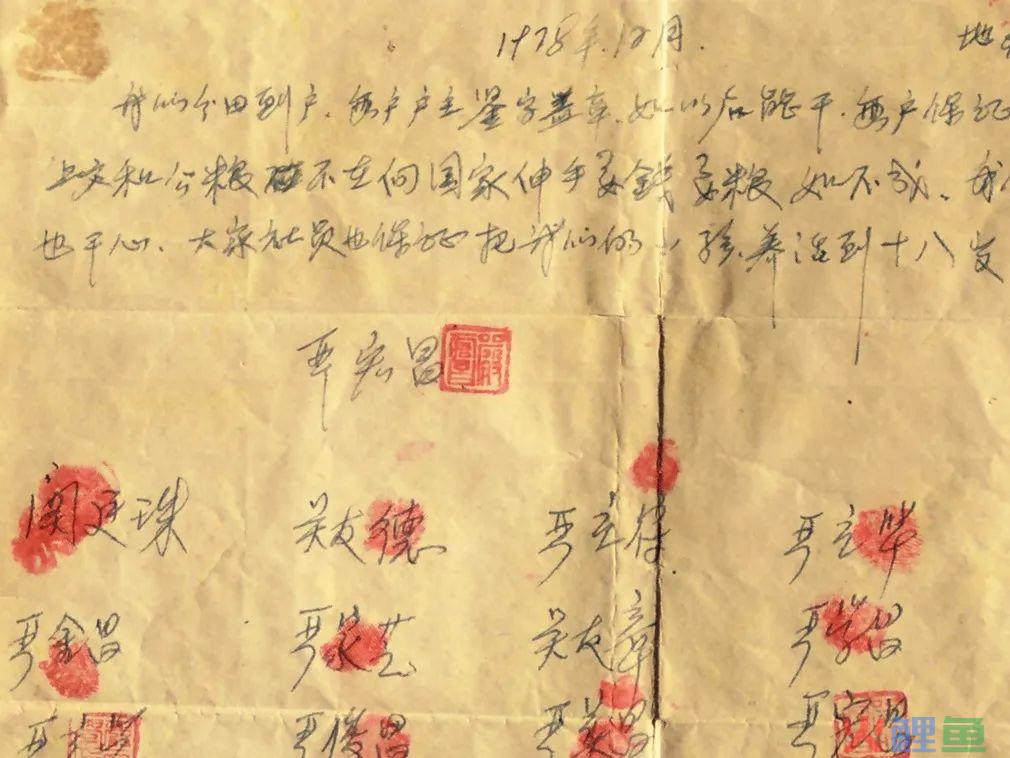 1978年12月. 地
我们分田到户.每户户主鉴字盖章.如以后能干.每户保证
上交和公粮不在向国家伸手要錢要粮如不成、我
也干心、大家社员也保证把我们的小孩养活到十八岁
严宏昌
关廷珠 关友德 严立符 严立华
严金昌 严家芝 关友章 严学昌
严 严俊昌 严美昌 严宏昌
火鲤鱼